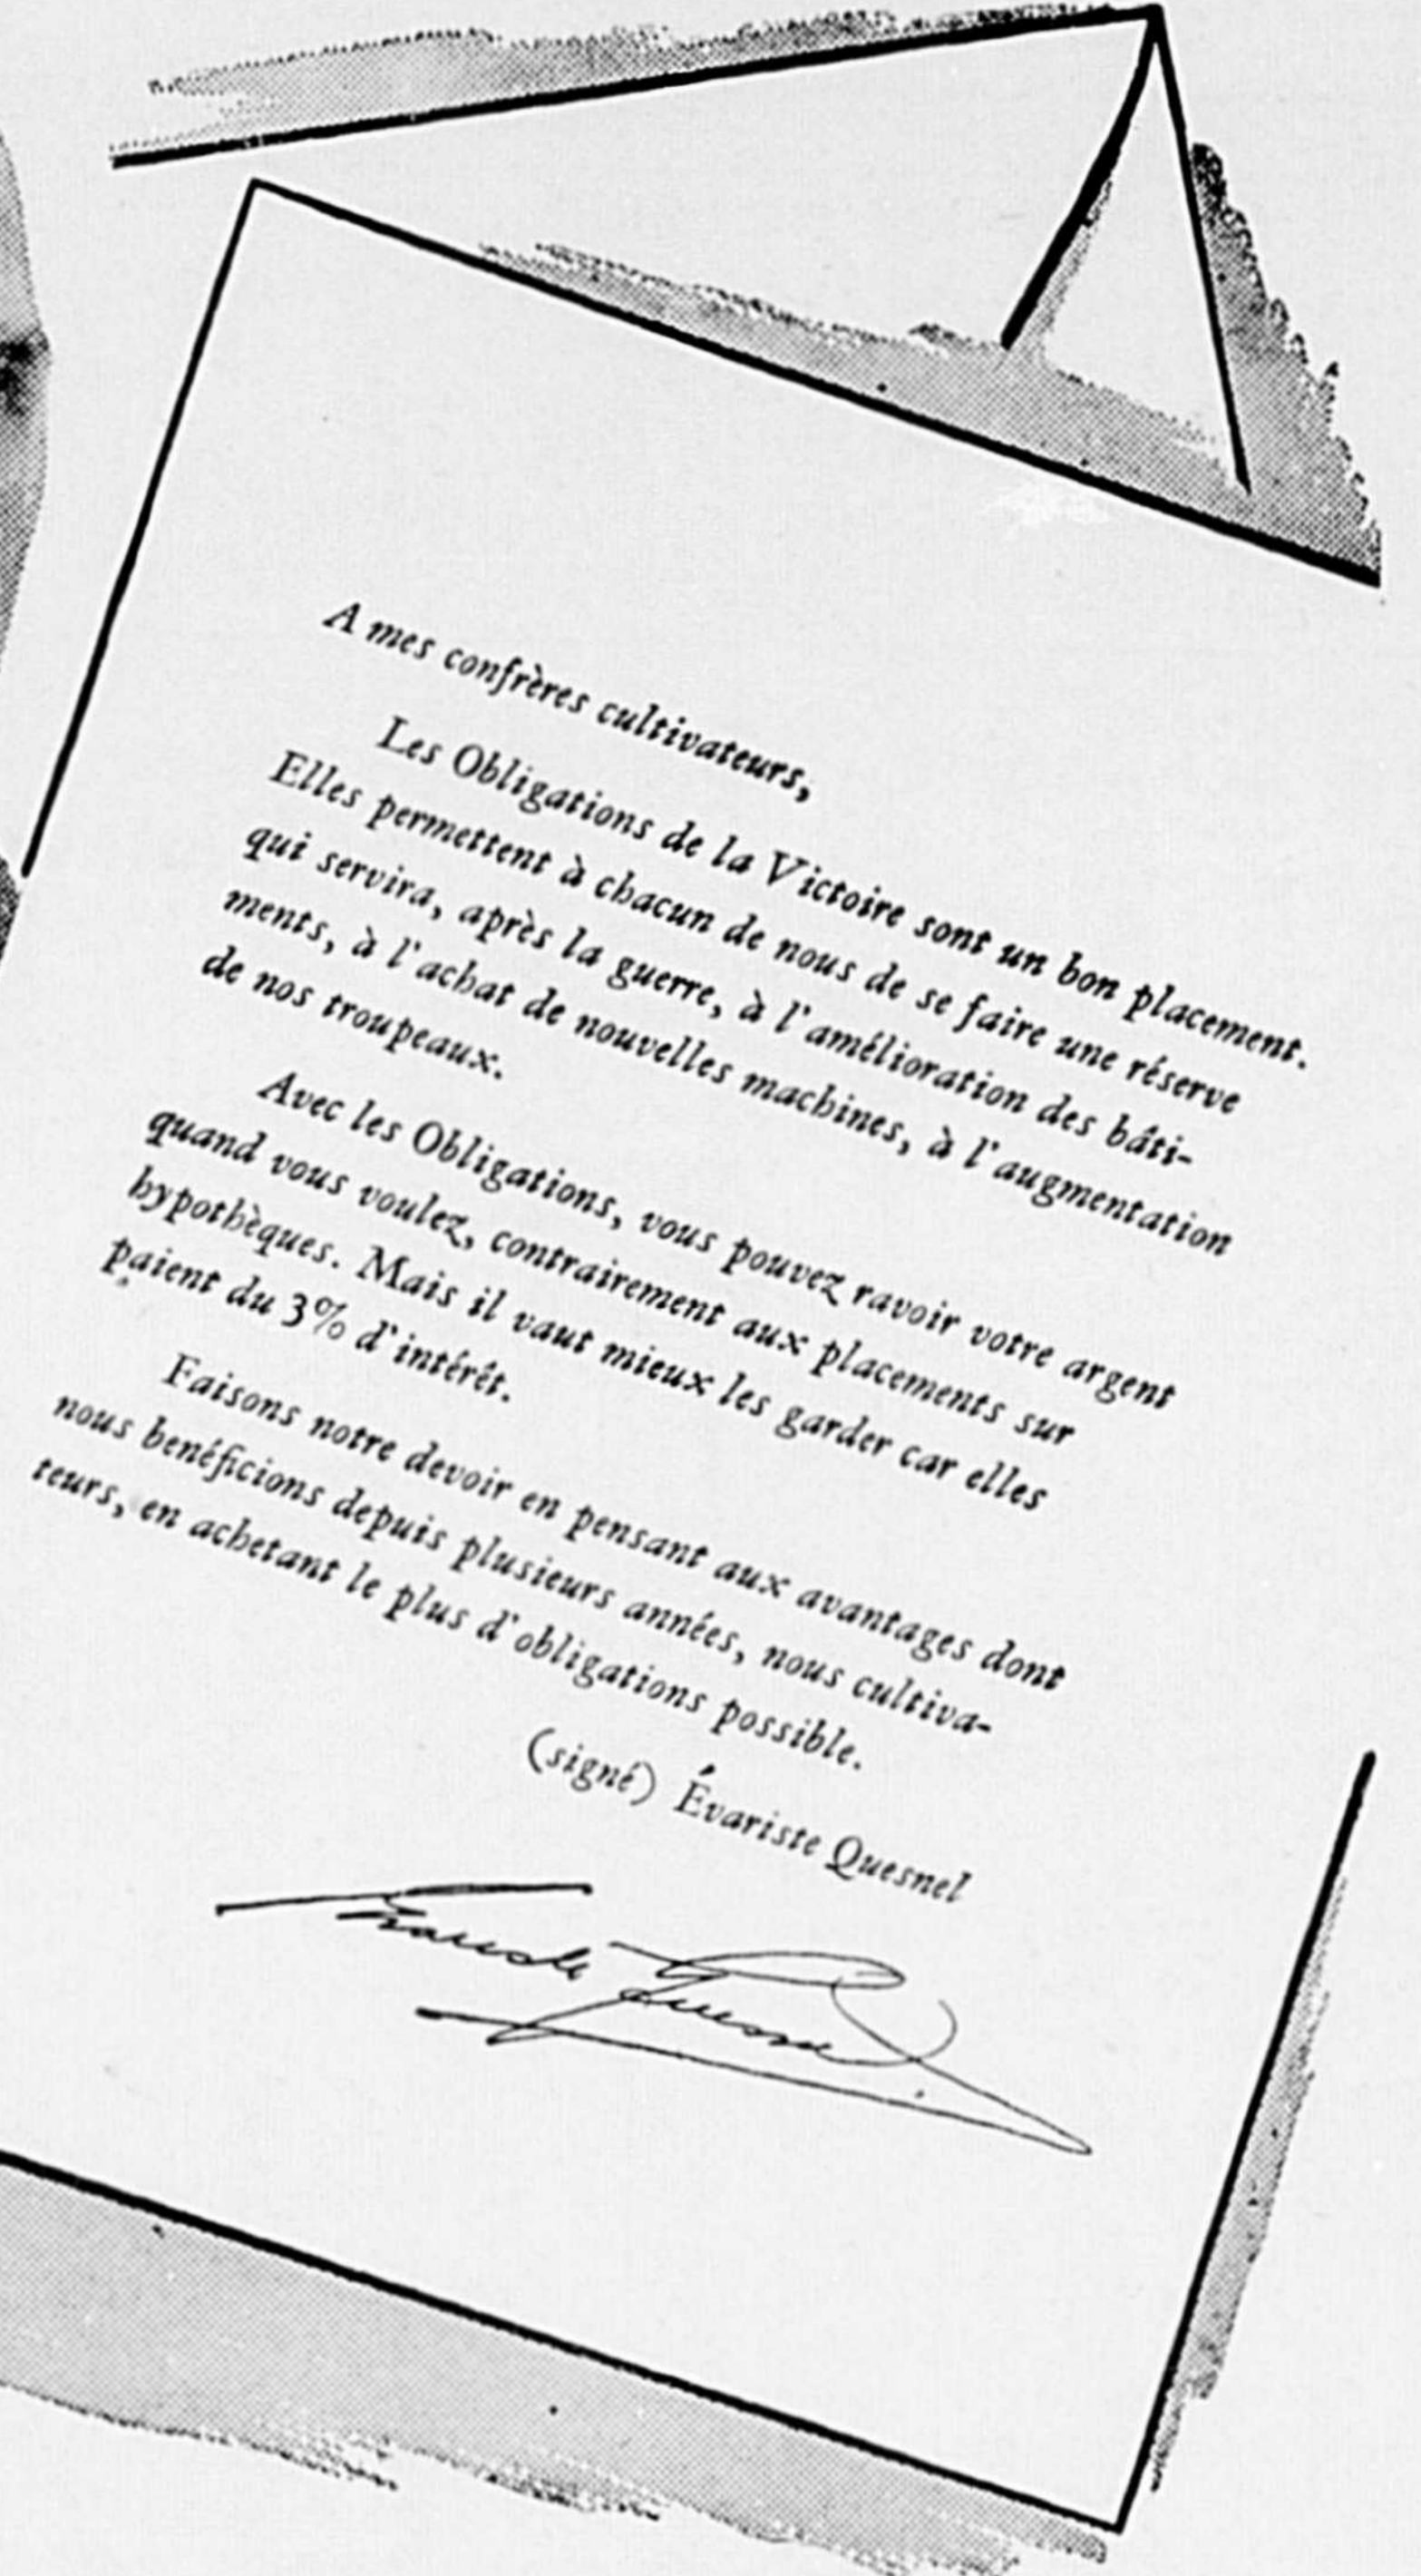 A mes confrères cultivateurs,
Les Obligations de la Victoire sont un bon placement.
Elles permettent à chacun de nous de se faire une réserve
qui servira, après la guerre, à l'amélioration des bâti-
ments, à l'achat de nouvelles machines, à l'augmentation
de nos troupeaux.
Avec les Obligations, vous pouvez ravoir votre argent
quand vous voulez, contrairement aux placements sur
hypothèques. Mais il vaut mieux les garder car elles
paient du 3% d'intérêt.
Faisons notre devoir en pensant aux avantages dont
nous benéficions depuis plusieurs années, nous cultiva-
teurs, en achetant le plus d'obligations possible.
(signé) Évariste Quesnel
Évariste Quesnel